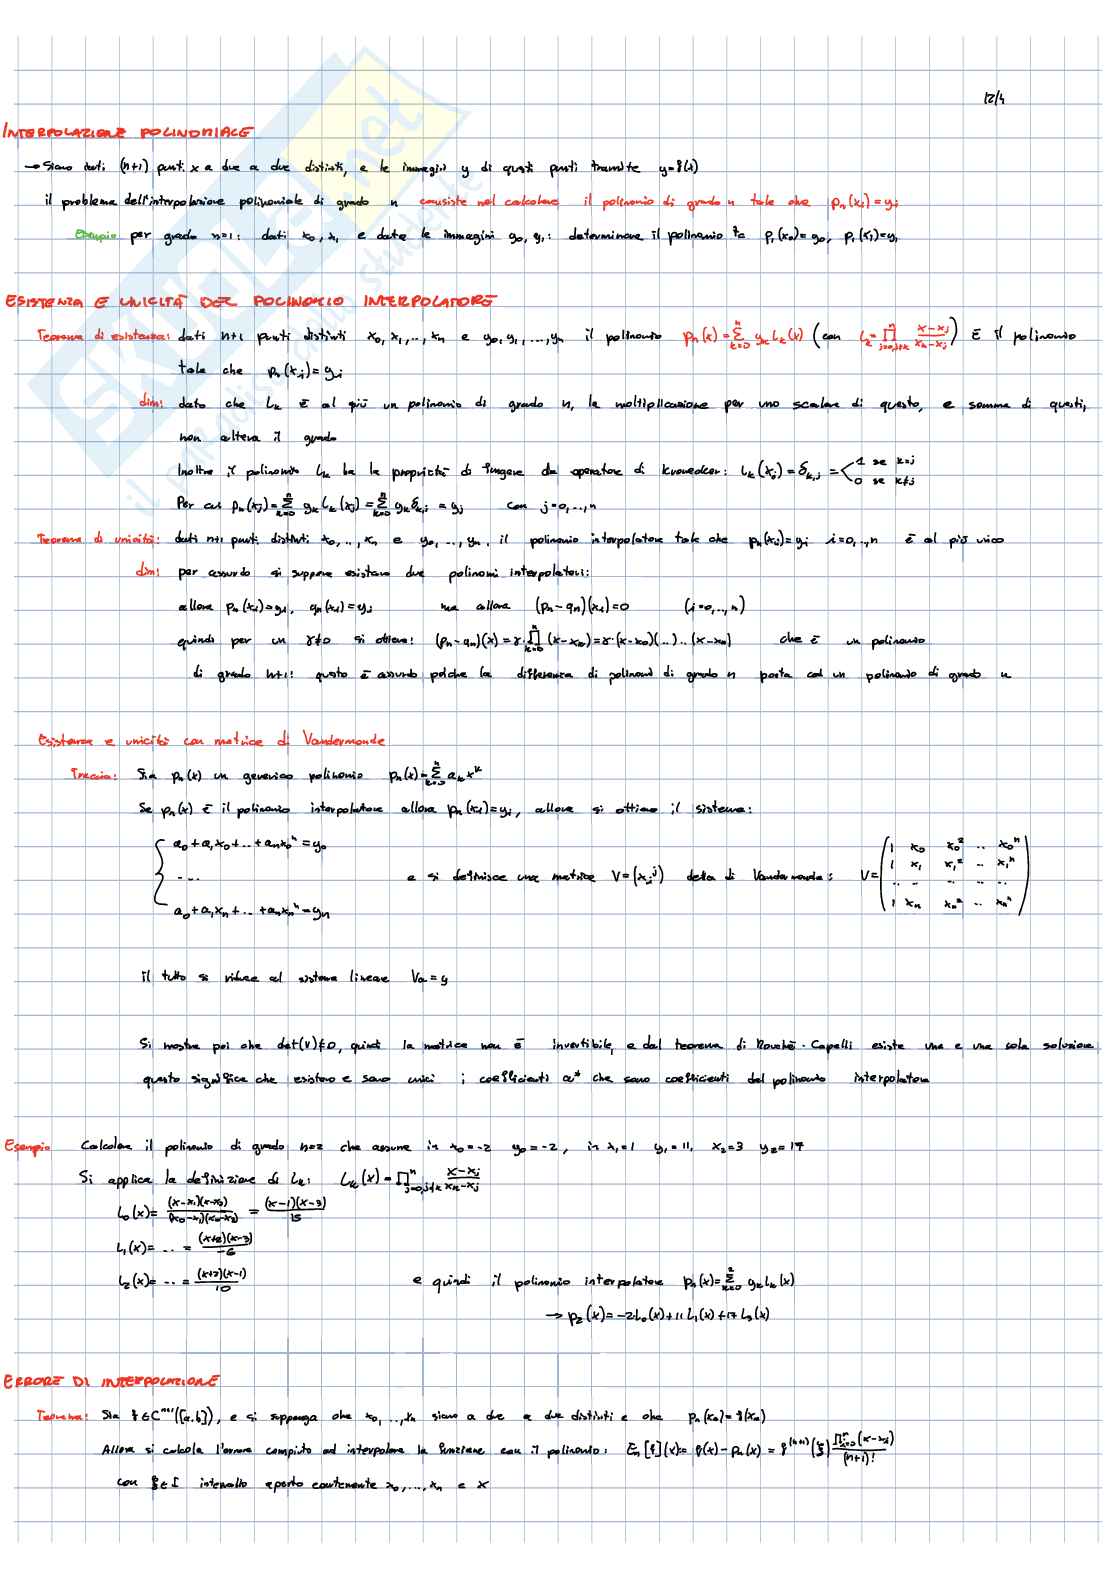 12/4
INTERPOLAZIONE POLINOMIALE
→ Siano dati (n+1) punti x a due a due distinti, e le immagini y di questi punti tramite y=f(x)
il problema dell'interpolazione polinomiale di grado n consiste nel calcolare il polinomio di grado n tale che pₙ(xᵢ)=yᵢ
Esempio per grado n=1: dati x₀, x₁ e date le immagini y₀, y₁: determinare il polinomio tc p₁(x₀)=y₀, p₁(x₁)=y₁
ESISTENZA E UNICITÀ DEL POLINOMIO INTERPOLATORE
Teorema di esistenza: dati n+1 punti distinti x₀, x₁, .., xₙ e y₀, y₁, ..., yₙ il polinomio pₙ(x)=∑ₖ₌₀ⁿ yₖLₖ(x) (con Lₖ=∏ⁿⱼ₌₀,ⱼ≠ₖ (x-xⱼ)/(xₖ-xⱼ)) È il polinomio
tale che pₙ(xᵢ)=yᵢ
dim: dato che Lₖ è al più un polinomio di grado n, la moltiplicazione per uno scalare di questo, e somma di questi,
non altera il grado
Inoltre il polinomio Lₖ ha la proprietà di fungere da operatore di kronedcer: Lₖ(xⱼ)=δₖ,ⱼ = < 1 se k=j
0 se k≠j
Per cui pₙ(xⱼ)=∑ₖ₌₀ⁿ yₖLₖ(xⱼ)=∑ₖ₌₀ⁿ yₖδₖ,ⱼ = yⱼ con j=0,..,n
Teorema di unicità: dati n+1 punti distinti x₀, .., xₙ e y₀, .., yₙ, il polinomio interpolatore tale che pₙ(xᵢ)=yᵢ i=0,..,n è al più unico
dim: per assurdo si suppone esistano due polinomi interpolatori:
allora pₙ(xᵢ)=yᵢ, qₙ(xᵢ)=yᵢ ma allora (pₙ-qₙ)(xᵢ)=0 (i=0,..,n)
quindi per un γ≠0 si ottiene: (pₙ-qₙ)(x)=γ·∏ₖ₌₀ⁿ(x-xₖ)=γ·(x-x₀)(..)..(x-xₙ) che è un polinomio
di grado n+1: questo è assurdo poiché la differenza di polinomi di grado n porta ad un polinomio di grado n
Esistenza e unicità con matrice di Vandermonde
Traccia: Sia pₙ(x) un generico polinomio pₙ(x)=∑ₖ₌₀ⁿ aₖxᵏ
Se pₙ(x) è il polinomio interpolatore allora pₙ(xᵢ)=yᵢ, allora si ottiene il sistema:
{ a₀+a₁x₀+..+aₙx₀ⁿ=y₀
....
a₀+a₁xₙ+..+aₙxₙⁿ=yₙ
e si definisce una matrice V=(xᵢʲ) detta di Vandermonde: V=
( 1 x₀ x₀² .. x₀ⁿ
1 x₁ x₁² .. x₁ⁿ
.. .. .. .. ..
1 xₙ xₙ² .. xₙⁿ )
il tutto si riduce al sistema lineare Va=y
Si mostra poi che det(V)≠0, quindi la matrice non è invertibile, e dal teorema di Rouché-Capelli esiste una e una sola soluzione
questo significa che esistono e sono unici i coefficienti a* che sono coefficienti del polinomio interpolatore
Esempio Calcolare il polinomio di grado n=2 che assume in x₀=-2 y₀=-2, in x₁=1 y₁=11, x₂=3 y₂=17
Si applica la definizione di Lₖ: Lₖ(x)=∏ⁿⱼ₌₀,ⱼ≠ₖ (x-xⱼ)/(xₖ-xⱼ)
L₀(x)= (x-x₁)(x-x₂)/(x₀-x₁)(x₀-x₂) = (x-1)(x-3)/15
L₁(x)= .. = (x+2)(x-3)/-6
L₂(x)= .. = (x+2)(x-1)/10 e quindi il polinomio interpolatore pₙ(x)=∑ₖ₌₀² yₖLₖ(x)
→ p₂(x)=-2L₀(x)+11L₁(x)+17L₂(x)
ERRORE DI INTERPOLAZIONE
Teorema: Sia f∈Cⁿ⁺¹([a,b]), e si supponga che x₀, .., xₙ siano a due a due distinti e che pₙ(xₙ)=f(xₙ)
Allora si calcola l'errore compiuto ad interpolare la funzione con il polinomio: Eₙ[f](x)= f(x)-pₙ(x) = f⁽ⁿ⁺¹⁾(ξ) ∏ⁿᵢ₌₀(x-xᵢ)/(n+1)!
con ξ∈I intervallo aperto contenente x₀,...,xₙ e x